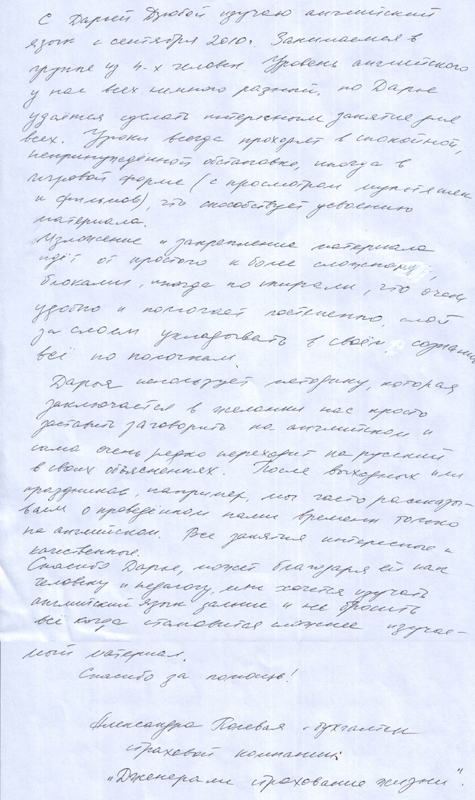 С Дарьей Дзюбой изучаю английский
язык с сентября 2010г. Занимаемся в
группе из 4-х человек. Уровень английского
у нас всех немного разный, но Дарье
удаётся сделать интересным занятие для
всех. Уроки всегда проходят в спокойной,
непринуждённой обстановке, иногда в
игровой форме (с просмотром мультяшек
и фильмов), что способствует усвоению
материала.
Изложение и закрепление материала
идёт от простого к более сложному,
блоками, иногда по спирали, что очень
удобно и помогает постепенно, слой
за слоем укладывать в своём сознании
всё по полочкам.
Дарья использует методику, которая
заключается в желании нас просто
заставить заговорить на английском и
сама очень редко переходит на русский
в своих объяснениях. После выходных или
праздников, например, мы часто рассказы-
ваем о проведённом нами времени только
на английском. Все занятия интересные и
качественные.
Спасибо Дарье, может благодаря ей как
человеку и педагогу, мне хочется изучать
английский язык дальше и не бросить
всё когда становится сложнее изучае-
мый материал.
Спасибо за помощь!
Александра Полевая - бухгалтер
страховой компании
"Дженерали страхование жизни".